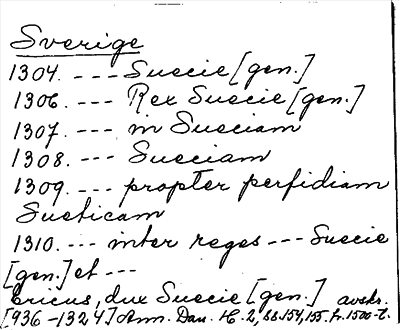 Sverige
1304. --- Suecie [gen.]
1306. --- Rex Suecie [gen.]
1307. --- in Sueciam
1308. --- Sueciam
1309. --- propter perfidiam
Sueticam
1310. --- inter reges --- Suecie
[gen.] et ---
Ericus, dux Suecie [gen.] avskr.
[936-1324] Ann. Dan. H. 2, ss. 154, 155. fr. 1500-t.